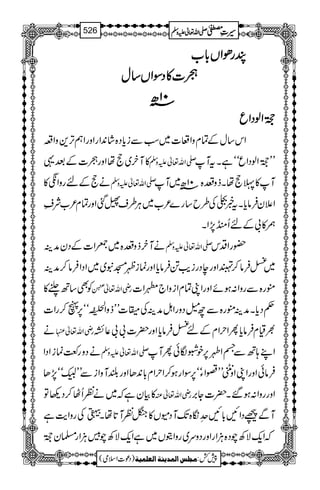 سیرتِ مصطفی صلی اللہ تعالیٰ علیہ وسلم
526
پندرھواں باب
ہجرت کا دسواں سال
۱۰ھ
حجۃ الوداع
اس سال کے تمام واقعات میں سب سے زیادہ شاندار اور اہم ترین واقعہ
’’حجۃ الوداع‘‘ ہے۔ یہ آپ صلی اللہ تعالیٰ علیہ وسلم کا آخری حج تھا اور ہجرت کے بعد یہی
آپ کا پہلا حج تھا۔ ذوقعدہ ۱۰ھ میں آپ صلی اللہ تعالیٰ علیہ وسلم نے حج کے لئے روانگی کا
اعلان فرمایا۔ یہ خبر بجلی کی طرح سارے عرب میں ہر طرف پھیل گئی اور تمام عرب شرفِ
ہمرکابی کے لئے اُمنڈ پڑا۔
حضور اقدس صلی اللہ تعالیٰ علیہ وسلم نے آخر ذوقعدہ میں جمعرات کے دن مدینہ
میں غسل فرما کر تہبند اور چادر زیب تن فرمایا اور نماز ظہر مسجد نبوی میں ادا فرما کر مدینہ
منورہ سے روانہ ہوئے اور اپنی تمام ازواج مطہرات رضی اللہ تعالیٰ عنہن کو بھی ساتھ چلنے کا
حکم دیا۔ مدینہ منورہ سے چھ میل دور اہل مدینہ کی میقات ’’ذوالحلیفہ‘‘ پر پہنچ کر رات
بھر قیام فرمایا پھر احرام کے لئے غسل فرمایا اور حضرت بی بی عائشہ رضی اللہ تعالیٰ عنہا نے
اپنے ہاتھ سے جسم اطہر پر خوشبو لگائی پھر آپ صلی اللہ تعالیٰ علیہ وسلم نے دو رکعت نماز ادا
فرمائی اور اپنی اونٹنی ’’قصواء‘‘ پر سوار ہو کر احرام باندھا اور بلند آواز سے ’’لبیک‘‘ پڑھا
اور روانہ ہو گئے۔ حضرت جابر رضی اللہ تعالیٰ عنہ کا بیان ہے کہ میں نے نظر اُٹھا کر دیکھا تو
آگے پیچھے دائیں بائیں حدِ نگاہ تک آدمیوں کا جنگل نظر آتا تھا۔ بیہقی کی روایت ہے
کہ ایک لاکھ چودہ ہزار اور دوسری روایتوں میں ہے ایک لاکھ چوبیس ہزار مسلمان حجۃ
پیش کش: مجلس المدینۃ العلمیۃ (دعوت اسلامی)